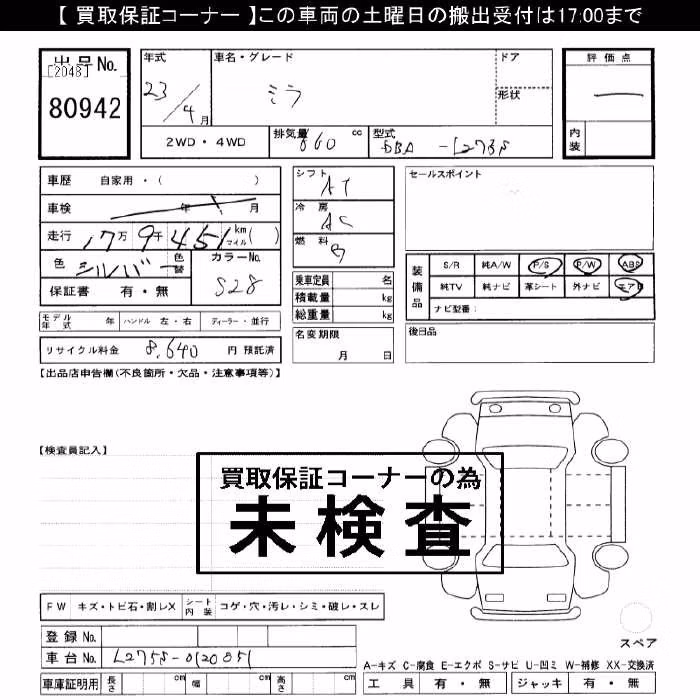 【 買取保証コーナー 】この車両の土曜日の搬出受付は17:00まで
出品No.
[2048]
80942
年式
23/4月
車名・グレード
ミラ
ドア
形状
評価点
内装
2WD・4WD
排気量 660 cc
型式 DBA-L275S
車歴 自家用・( )
車検 年 月
走行 17万9千451 km マイル( )
色 シルバー 色替
カラーNo. S28
保証書 有・無
シフト AT
冷房 AC
燃料 G
乗車定員 名
積載量 kg
総重量 kg
セールスポイント
装備品
S/R 純A/W P/S P/W ABS
純TV 純ナビ 革シート 外ナビ エアB
ナビ型番:
モデル年式 年 ハンドル 左・右 ディーラー・並行
リサイクル料金 8,640 円 預託済
名変期限 月 日
後日品
【出品店申告欄(不良箇所・欠品・注意事項等)】
【検査員記入】
買取保証コーナーの為
未検査
FW キズ・トビ石・割レX シート内装 コゲ・穴・汚レ・シミ・破レ・スレ
登録No.
車台No. L275S-0120851
車庫証明用 長さ cm 幅 cm 高さ cm
スペア
A-キズ C-腐食 E-エクボ S-サビ U-凹ミ W-補修 XX-交換済
工具 有・無 ジャッキ 有・無